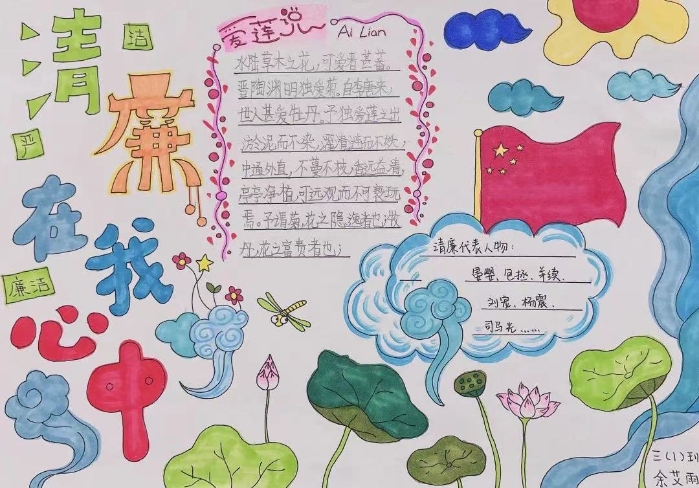 清
廉
洁
严
在我
廉洁
心中
爱莲说
Ai Lian
水陆草木之花，可爱者甚蕃。
晋陶渊明独爱菊。自李唐来，
世人甚爱牡丹。予独爱莲之出
淤泥而不染，濯清涟而不妖，
中通外直，不蔓不枝，香远益清，
亭亭净植，可远观而不可亵玩
焉。予谓菊，花之隐逸者也；牡
丹，花之富贵者也；
清廉代表人物：
晏婴、包拯、羊续、
刘宠、杨震、
司马光……
三(1)班
余艾雨